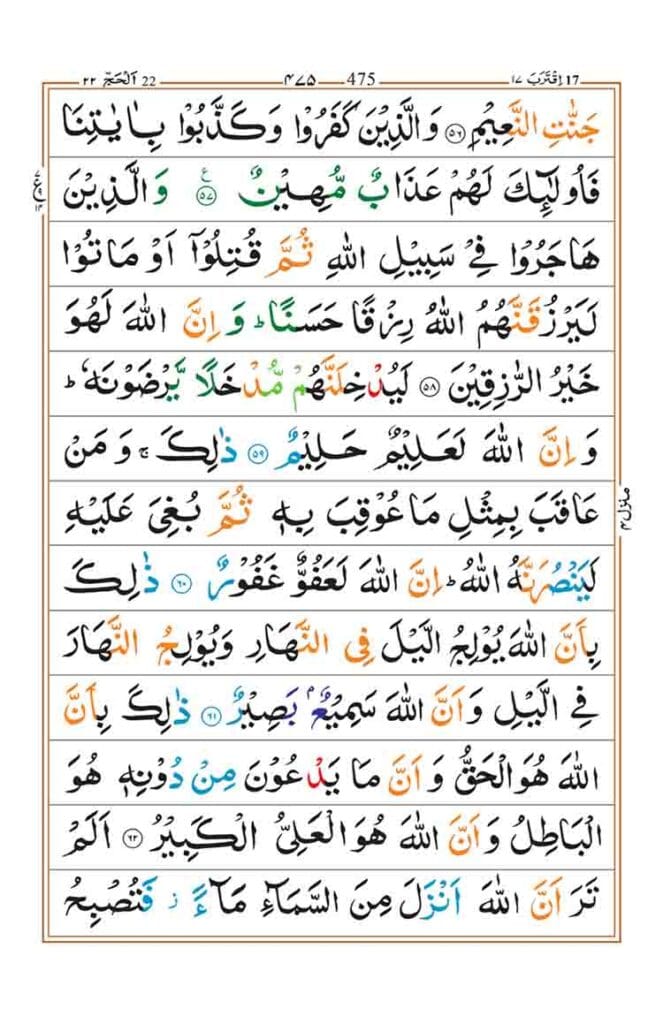 اِقْتَرَبَ ١٧ 17 ٤٧٥ 475 اَلْحَجّ ٢٢ 22
جَنّٰتِ النَّعِيْمِ ﴿٥٦﴾ وَالَّذِيْنَ كَفَرُوْا وَكَذَّبُوْا بِاٰيٰتِنَا
فَاُولٰٓئِكَ لَهُمْ عَذَابٌ مُّهِيْنٌ ع ﴿٥٧﴾ وَالَّذِيْنَ
هَاجَرُوْا فِيْ سَبِيْلِ اللّٰهِ ثُمَّ قُتِلُوْٓا اَوْ مَاتُوْا
لَيَرْزُقَنَّهُمُ اللّٰهُ رِزْقًا حَسَنًا ؕ وَاِنَّ اللّٰهَ لَهُوَ
خَيْرُ الرّٰزِقِيْنَ ﴿٥٨﴾ لَيُدْخِلَنَّهُمْ مُّدْخَلًا يَّرْضَوْنَهٗ ؕ
وَاِنَّ اللّٰهَ لَعَلِيْمٌ حَلِيْمٌ ﴿٥٩﴾ ذٰلِكَ ۚ وَمَنْ
عَاقَبَ بِمِثْلِ مَا عُوْقِبَ بِهٖ ثُمَّ بُغِيَ عَلَيْهِ
لَيَنْصُرَنَّهُ اللّٰهُ ؕ اِنَّ اللّٰهَ لَعَفُوٌّ غَفُوْرٌ ﴿٦٠﴾ ذٰلِكَ
بِاَنَّ اللّٰهَ يُوْلِجُ الَّيْلَ فِي النَّهَارِ وَيُوْلِجُ النَّهَارَ
فِي الَّيْلِ وَاَنَّ اللّٰهَ سَمِيْعٌۢ بَصِيْرٌ ﴿٦١﴾ ذٰلِكَ بِاَنَّ
اللّٰهَ هُوَ الْحَقُّ وَاَنَّ مَا يَدْعُوْنَ مِنْ دُوْنِهٖ هُوَ
الْبَاطِلُ وَاَنَّ اللّٰهَ هُوَ الْعَلِيُّ الْكَبِيْرُ ﴿٦٢﴾ اَلَمْ
تَرَ اَنَّ اللّٰهَ اَنْزَلَ مِنَ السَّمَآءِ مَآءً ز فَتُصْبِحُ
منزل ٤